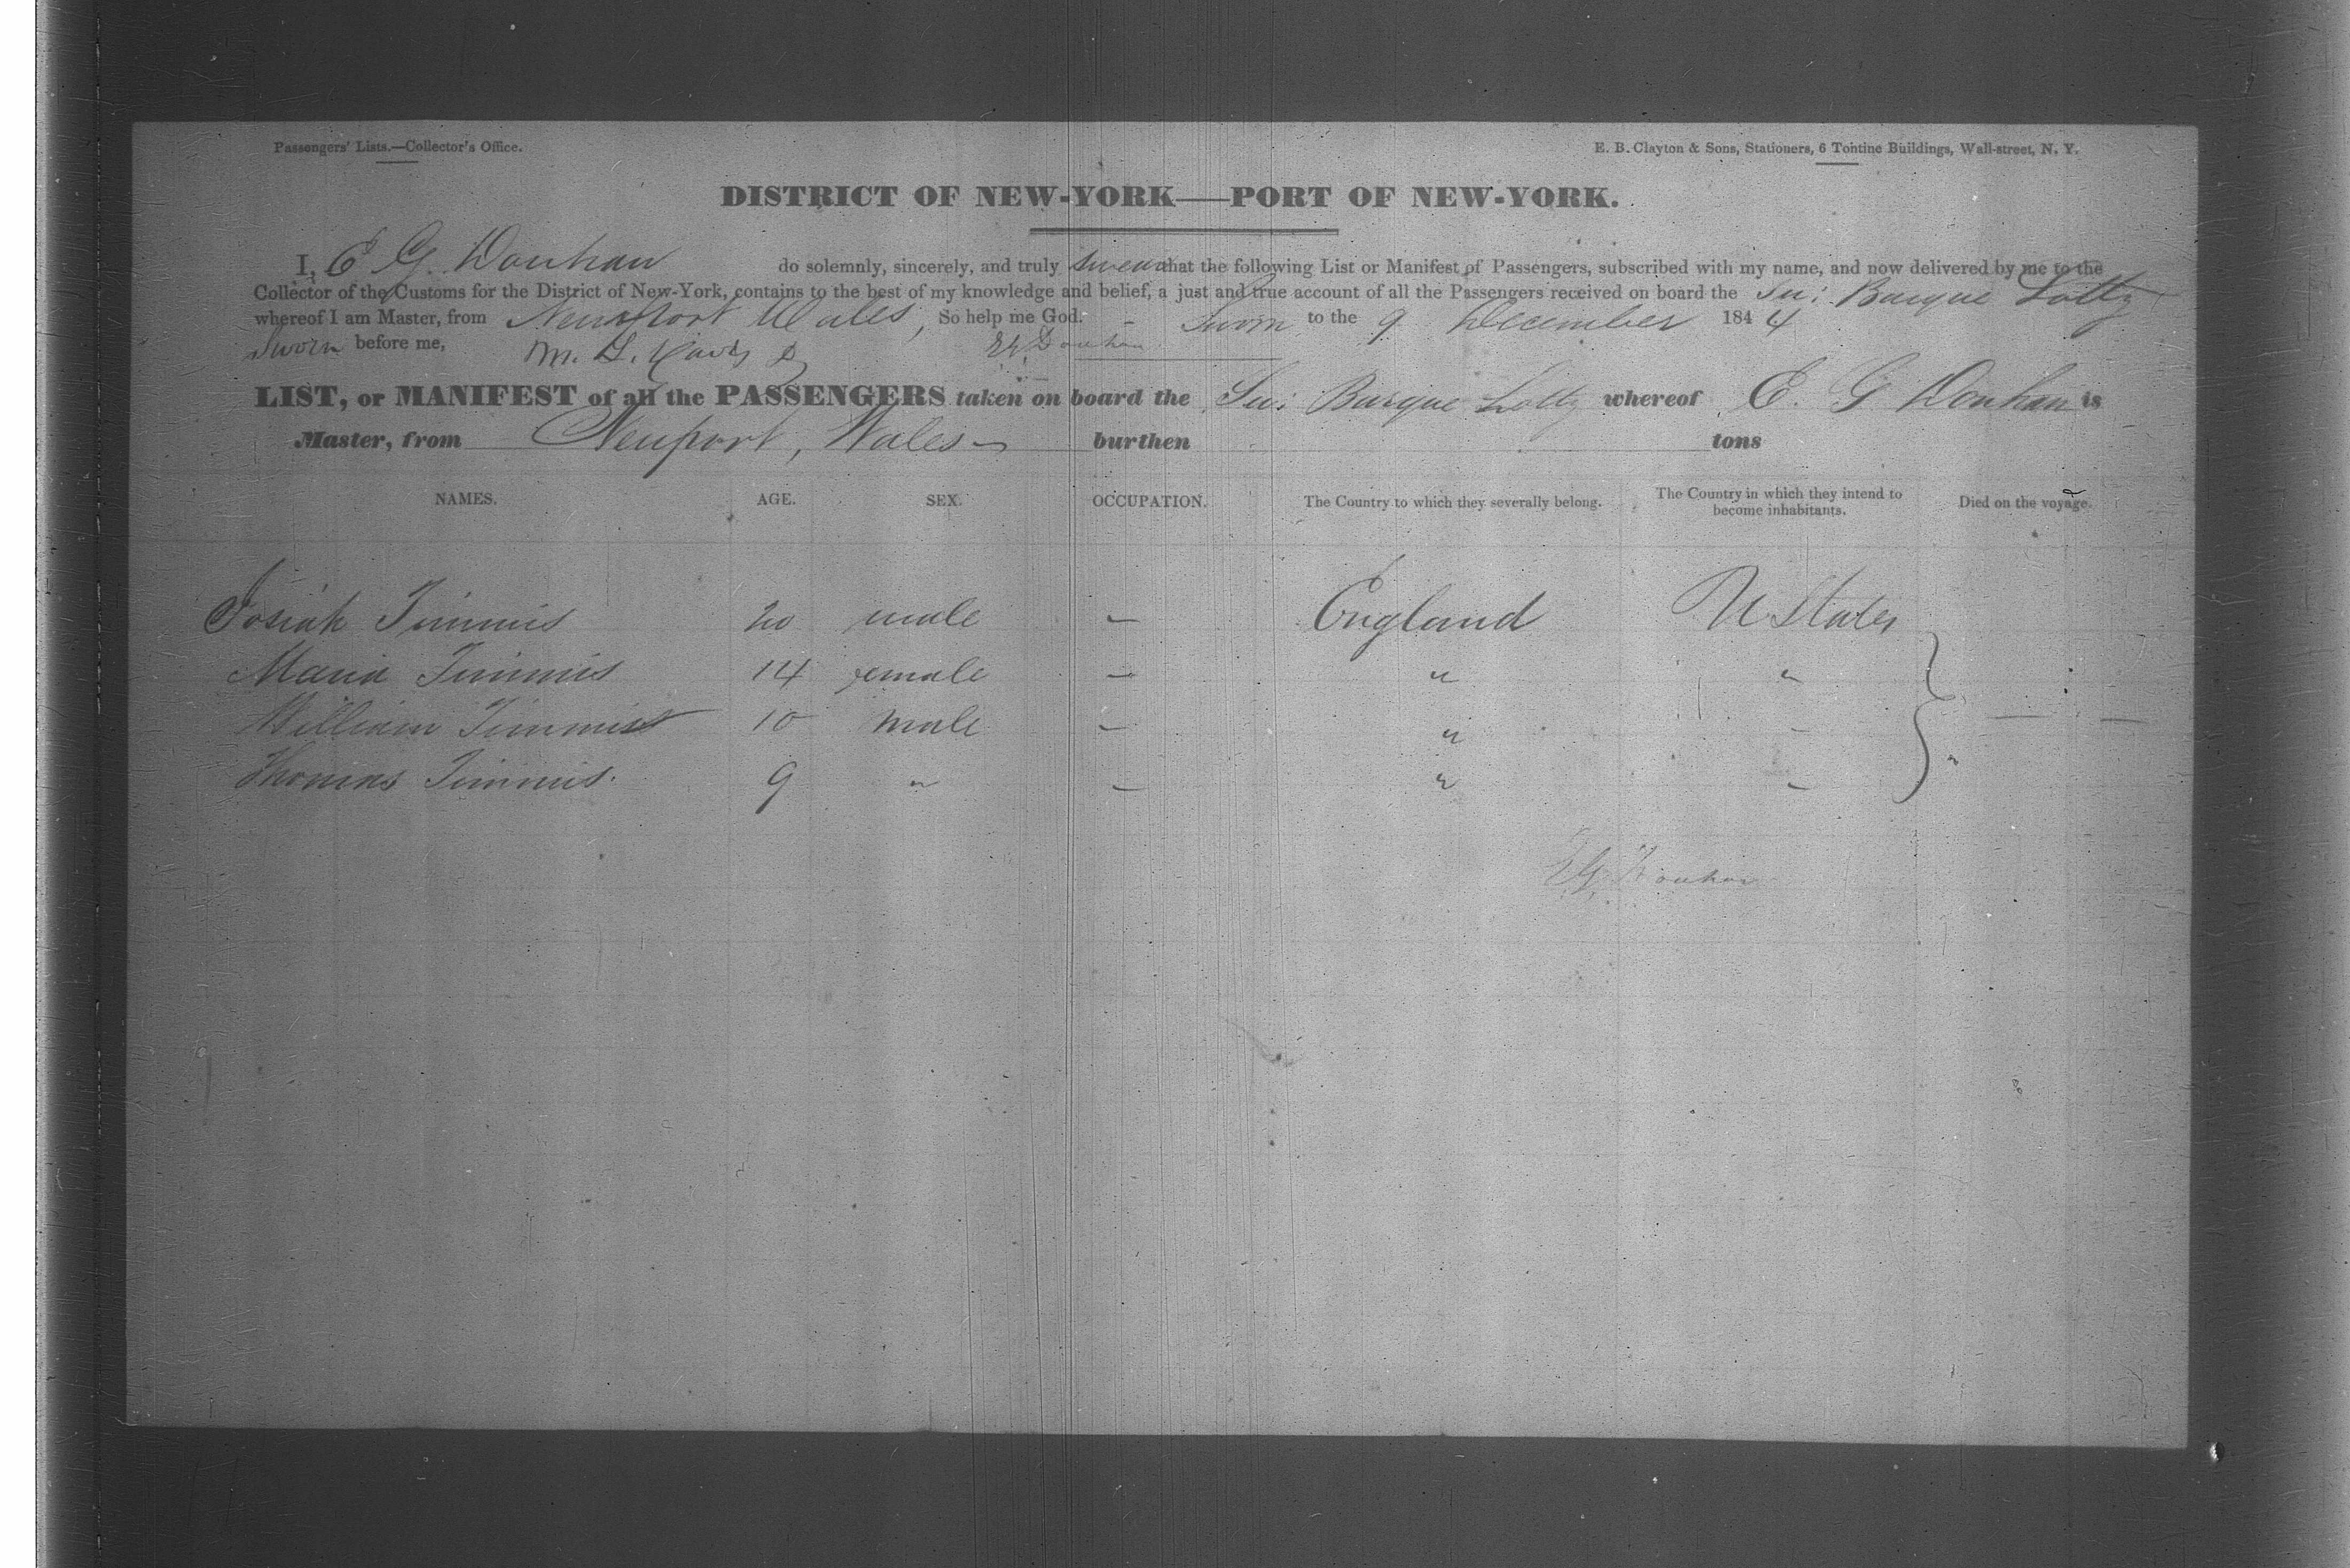 Passengers' Lists.—Collector's Office.
E. B. Clayton & Sons, Stationers, 6 Tontine Buildings, Wall-street, N. Y.
DISTRICT OF NEW-YORK—PORT OF NEW-YORK.
I, E G. Donhan do solemnly, sincerely, and truly swear that the following List or Manifest of Passengers, subscribed with my name, and now delivered by me to the
Collector of the Customs for the District of New-York, contains to the best of my knowledge and belief, a just and true account of all the Passengers received on board the Barque Lotty
whereof I am Master, from Newport Wales, So help me God. Sworn to the 9 December 1844
Sworn before me, EG Donhan
LIST, or MANIFEST of all the PASSENGERS taken on board the Barque Lotty whereof E. G Donhan is
Master, from Newport, Wales burthen tons
NAMES. AGE. SEX. OCCUPATION. The Country to which they severally belong. The Country in which they intend to become inhabitants. Died on the voyage.
Josiah Timmis 20 male — England U States
Maria Timmis 14 female — " "
William Timmis 10 male — " "
Thomas Timmis. 9 " — " "
EG. Donhan